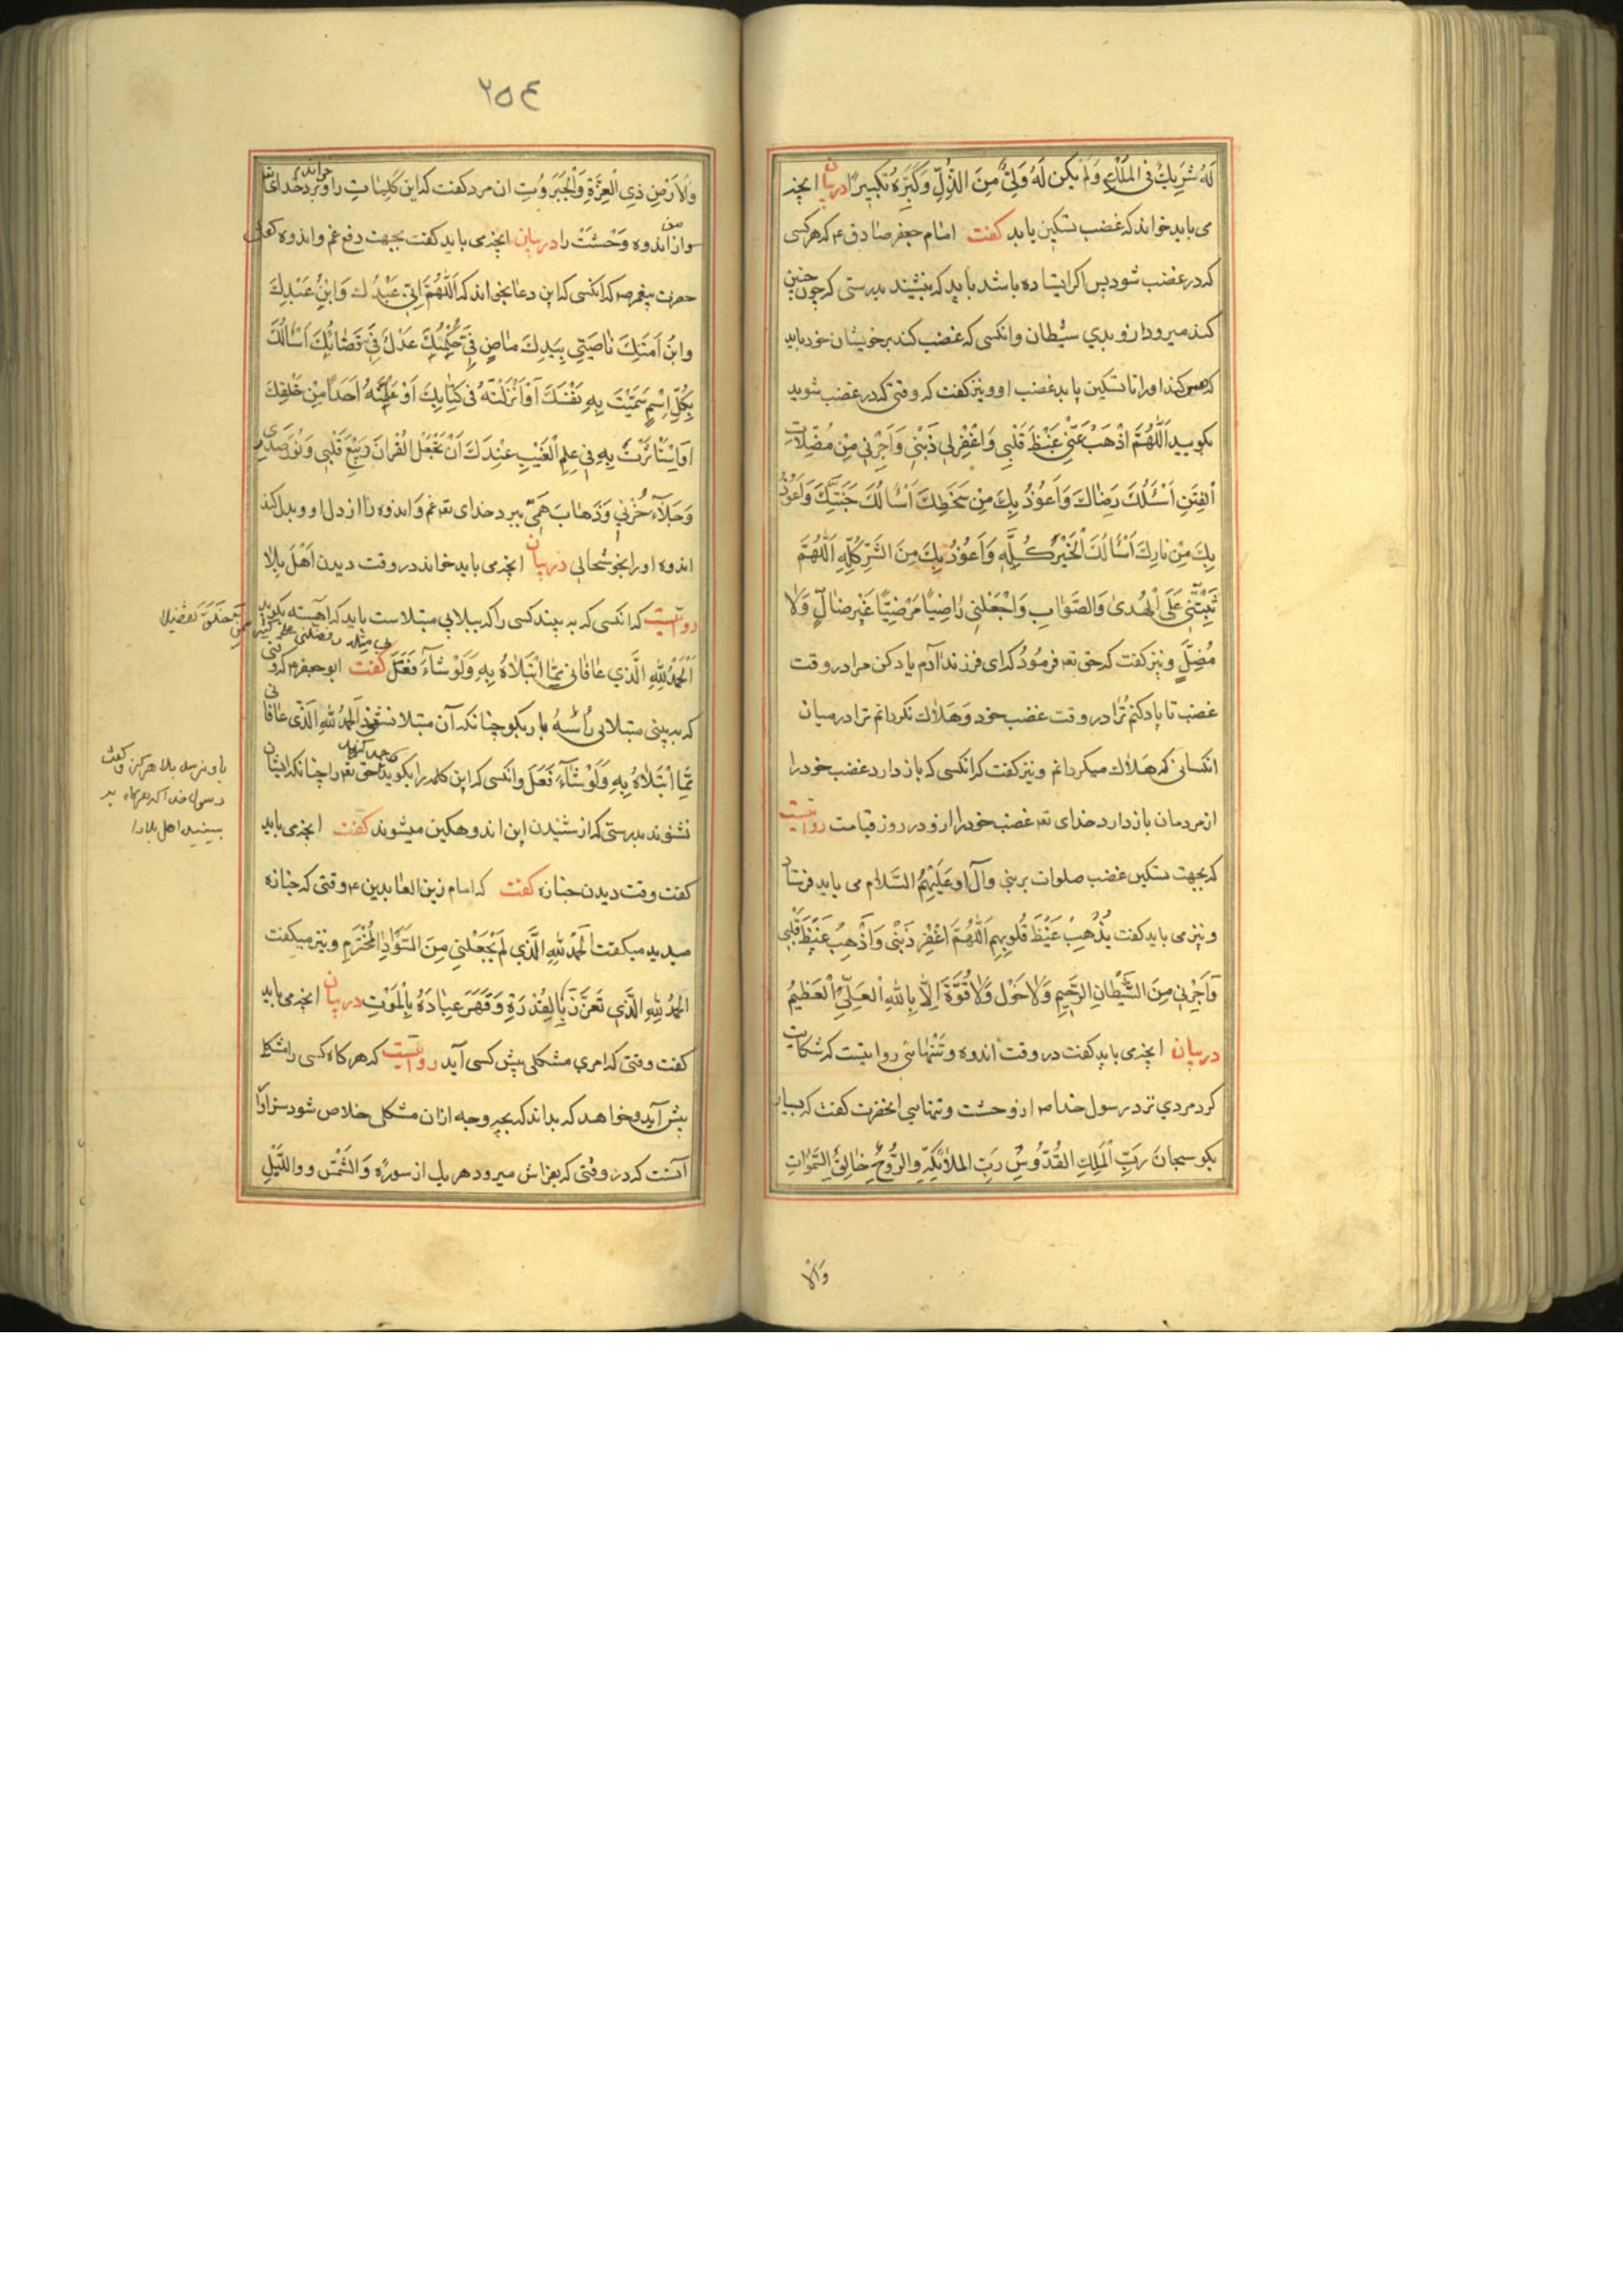 لَهُ شَرِيكٌ فِي الْمُلْكِ وَلَمْ يَكُن لَهُ وَلِيٌّ مِنَ الذُّلِّ وَكَبِّرْهُ تَكْبِيرًا دربیان انچه
می باید خواند که غضب تسکین یابد کفت امام جعفر صادق ع که هر کسی
که در غضب شود پس اکر ایستاده باشد باید که بنشیند بدرستی که چون چنین
کند میرود از و بدی شیطان وانکسی که غضب کند بر خویشان خود باید
که مس کند او را تا تسکین یابد غضب او و نیز کفت که وقتی که در غضب شوید
بکویید اَللّهُمَّ اذْهَبْ عَنّی غَیْظَ قَلْبِی وَاغْفِرْلِی ذَنْبِی وَاَجِرْنِی مِنْ مُضِلّاتِ
الْفِتَنِ اَسْئَلُكَ رِضَاكَ وَاَعُوذُ بِكَ مِنْ سَخَطِكَ اَسْاَلُكَ جَنَّتَكَ وَاَعُوذُ
بِكَ مِنْ نَارِكَ اَسْاَلُكَ الْخَیْرَ كُلَّهِ وَاَعُوذُ بِكَ مِنَ الشَّرِّ كُلِّهِ اَللّهُمَّ
ثَبِّتْنِی عَلَی الْهُدیٰ وَالصَّوَابِ وَاجْعَلْنِی رَاضِیًا مَرْضِیًّا غَیْرَ ضَالٍّ وَلَا
مُضِلٍّ و نیز کفت که حق تعه فرمُودُ که ای فرزند آدم یاد کن مرا در وقت
غضب تا یاد کنم تُرا در وقت غضب خود وَهَلاك نکردانم ترا در میان
انکسانی که هَلاك میکردانم و نیز کفت که انکسی که باز دارد غضب خود را
از مردمان باز دارد خدای تعه غضب خود را ازو در روز قیامت روایتست
که بجهت تسکین غضب صلوات بر نبی و آل او عَلَیْهِمُ السَّلام می باید فرستاد
و نیز می باید کفت یُذْهِبْ غَیْظَ قُلُوبِهِم اَللّهُمَّ اغْفِرْ ذَنْبِی وَاَذْهِبْ غَیْظَ قَلْبِی
وَاَجِرْنِی مِنَ الشَّیْطَانِ الرَّجِیمِ وَلَا حَوْلَ وَلَا قُوَّةَ اِلَّا بِاللّهِ الْعَلِیِّ الْعَظِیمُ
دربیان انچه می باید کفت در وقت اندوه و تَنْهایی روایتست که شکایت
کرد مردی نزد رسول خدا ص از وحشت و تنهایی انحضرت کفت که بسیار
بکو سبحانَ رَبِّ الْمَلِكِ القُدُّوسُِ رَبِّ الملائِكَةِ والرُّوحِ خَالِقُِ السَّمَوَاتِ
وَالْا
٢٥٤
وَالاَرْضِ ذِی الْعِزَّةِ وَالْجَبَرُوتِ ان مرد کفت که این کَلِمَاتِ را و برد خدای تعا
خواندم
من
سواز اندوه وَحْشَتْ را دربیان انچه می باید کفت بجهت دفع غم و اندوه کفت
حضرت پیغمبر ص که انکسی که این دعا بخواند که اَللّهُمَّ اِنّی عَبْدُك وَابْنُ عَبْدِكَ
وابنُ اَمَتِكَ نَاصِیَتِی بِیَدِكَ مَاضٍ فِیَّ حُكْمُكَ عَدْلٌ فِیَّ قَضَائُكَ اَسْاَلُكَ
بِكُلِّ اِسْمٍ سَمَّیْتَ بِهِ نَفْسَكَ اَوْ اَنْزَلْتَهُ فِی كِتَابِكَ اَوْ عَلَّمْتَهُ اَحَدًا مِنْ خَلْقِكَ
اَوِ اسْتَأثَرْتَ بِهِ فِی عِلْمِ الْغَیْبِ عِنْدَكَ اَنْ تَجْعَلَ الْقُرانَ رَبِیْعَ قَلْبِی وَنُورَ صَدْرِی
وَجَلَآءَ حُزْنِی وَذَهَابَ هَمِّی ببرد خدای تعه غم وَاندوه را از دل او و بدل کند
اندوه او را بخوشحالی دربیان انچه می باید خواند در وقت دیدن اَهْلَ بلا
روایتست که انکسی که به بیند کسی را که ببلایی مبتلاست باید که آهسته بکوید
اَلْحَمْدُ لِلّهِ الَّذِی عَافَانِی مِمَّا ابْتَلَاهُ بِهِ وَلَوْ شَآءَ فَعَلَ کفت ابو جعفر ع که وقتی
که به بینی مبتلائی را سه بار بکو چنانکه آن مبتلا نشنود اَلْحَمْدُ لِلّهِ الَّذِی عَافَانی
مِمَّا ابْتَلَاهُ بِهِ وَلَوْ شَآءَ فَعَلَ وانکسی که این کلمه را بکوید حق تعه را چنانکه ایشان
نشنوند بدرستی که از شنیدن این اندوهکین میشوند کفت انچه می باید
کفت وقت دیدن جنازه کفت که امام زین العابدین ع وقتی که جنازه
میدید میکفت اَلْحَمْدُ لِلّهِ الَّذِی لَمْ یَجْعَلْنِی مِنَ السَّوَادِ الْمُخْتَرَمِ و نیز میکفت
اَلْحَمْدُ لِلّهِ الَّذِی تَعَزَّزَ بِالْقُدْرَةِ وَقَهَرَ عِبَادَهُ بِالْمَوْتِ دربیان انچه می باید
کفت وقتی که امری مشکلی پیش کسی آید روایتست که هر کاه کسی را مشکل
پیش آید و خواهد که بداند که بچه وجه ازان مشکلی خلاص شود سزاوار
آنست که در وقتی که بفراش میرود هر یك از سورۀ وَالشَّمْسِ و واللَّیْلِ
باو نرسد بلا هرکز و کفت
رسول خدا که هرکاه به
بینید اهل بلا را